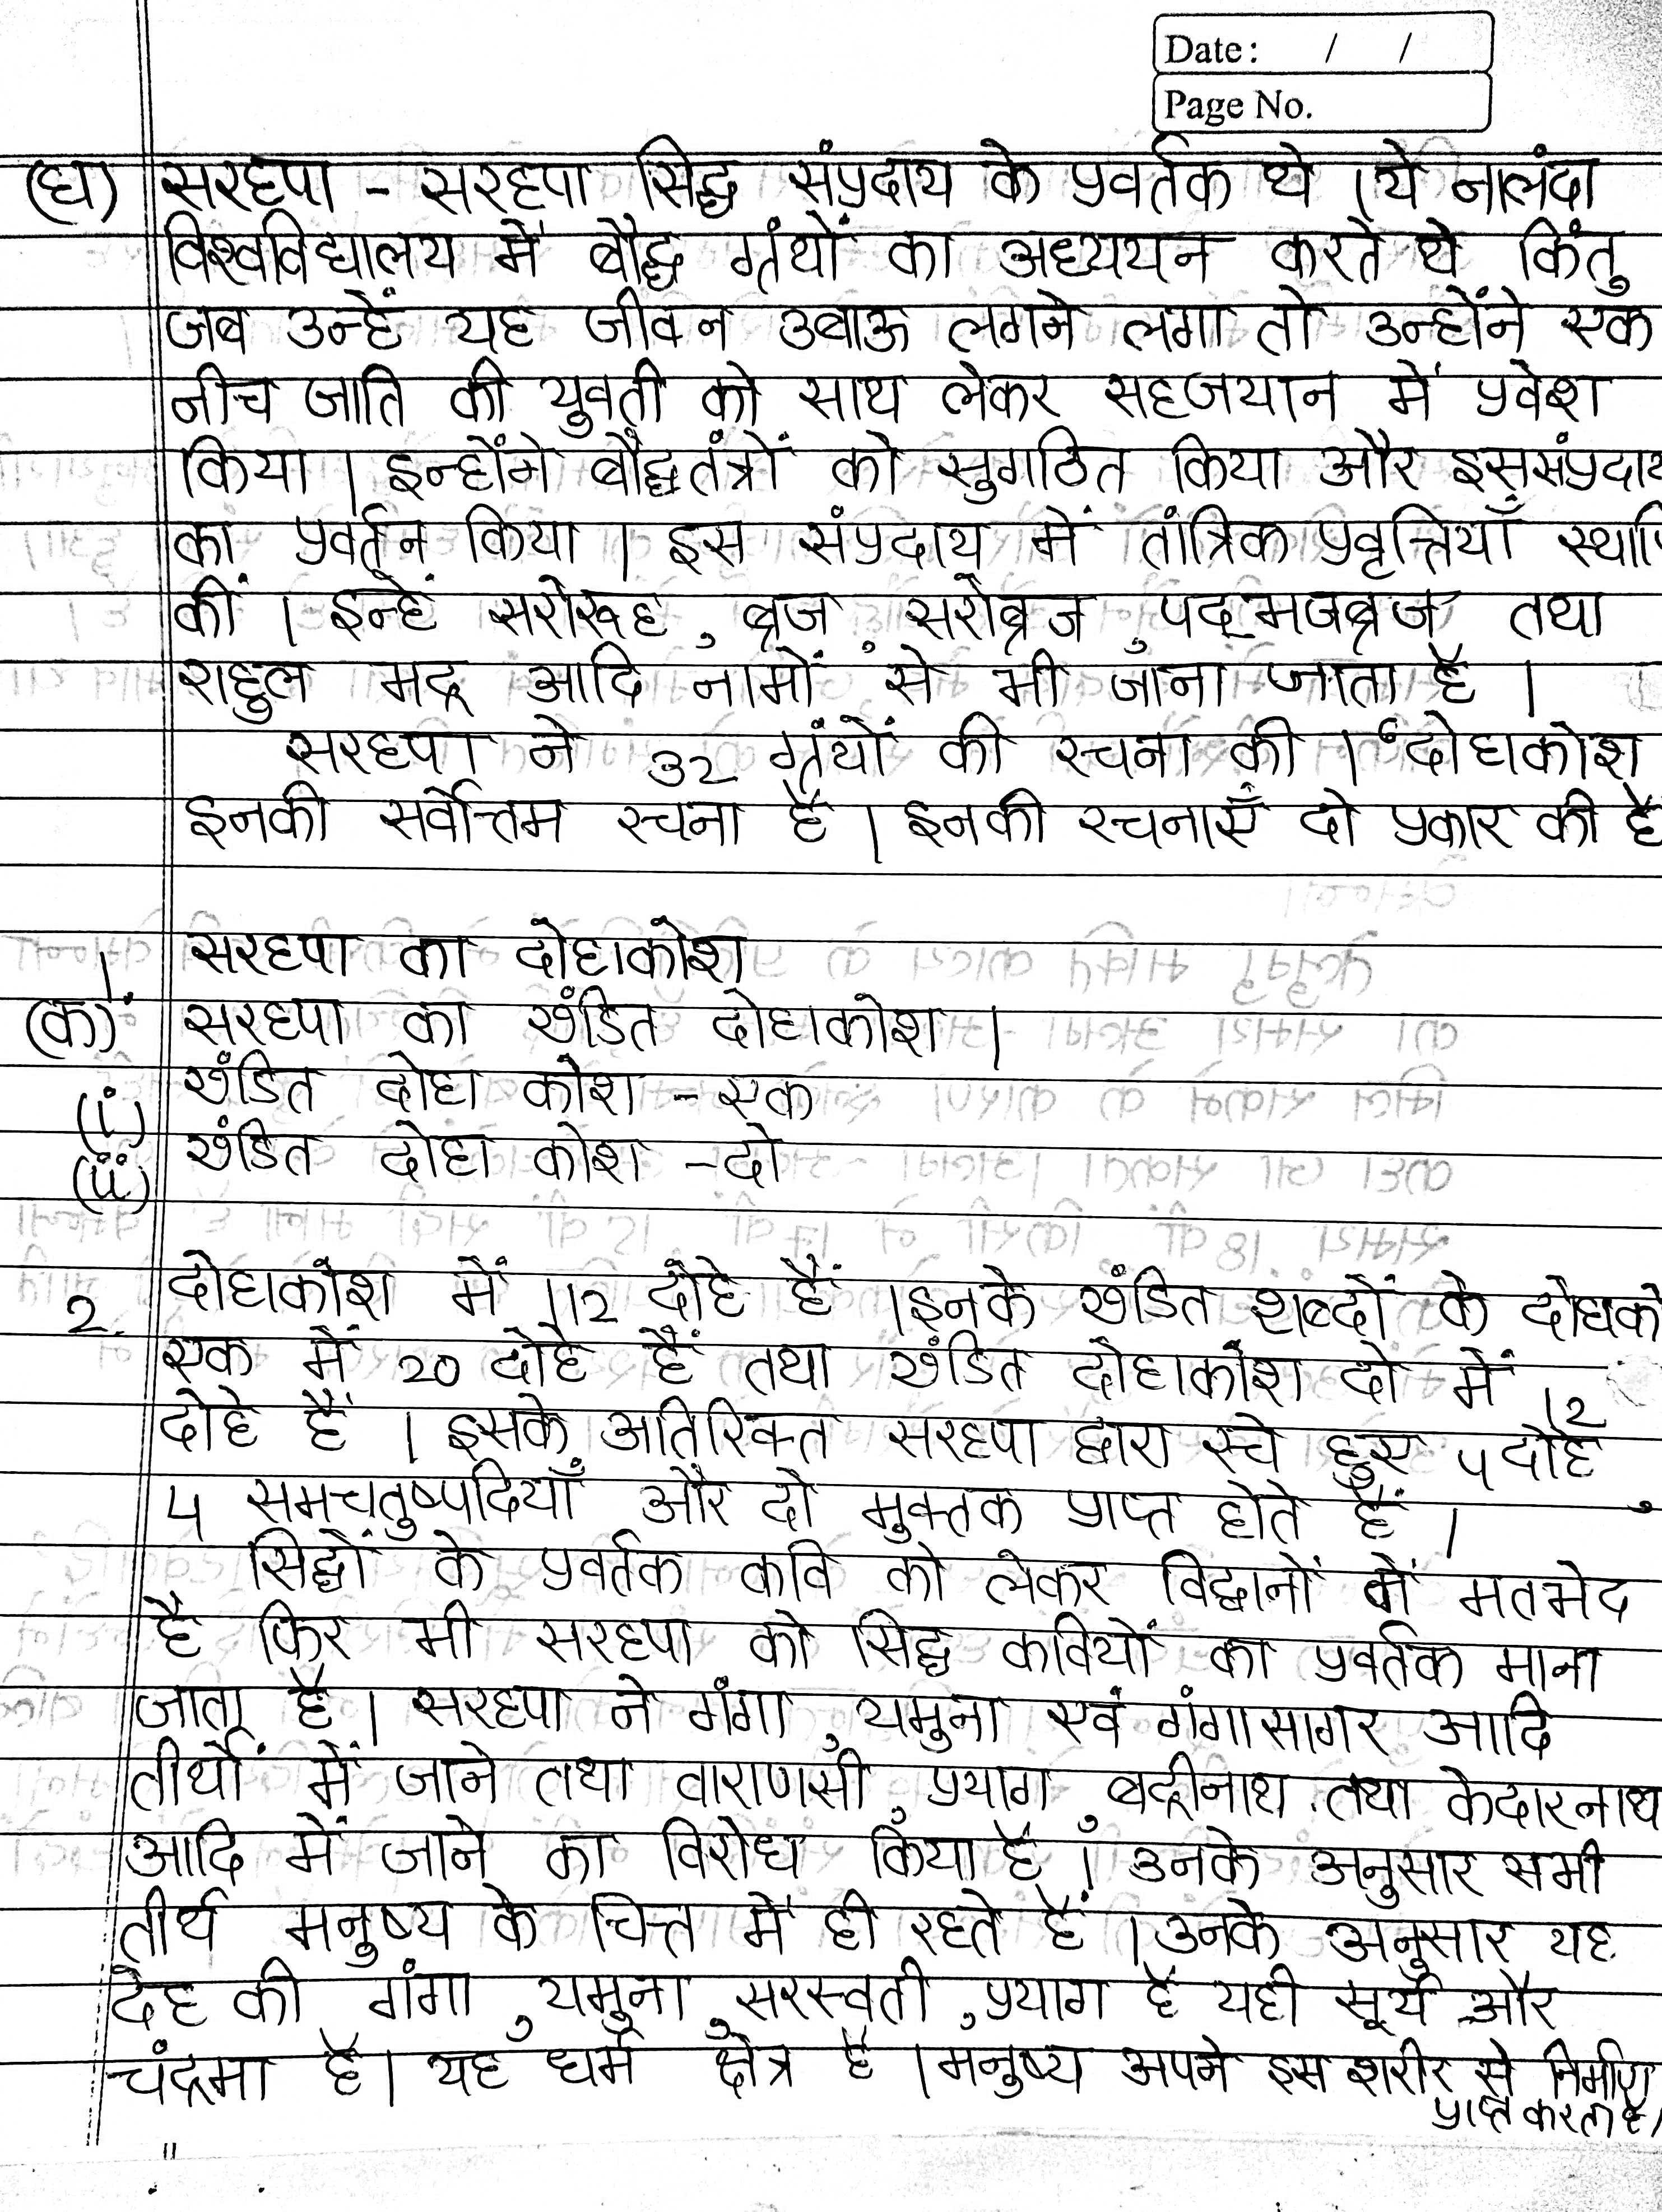 Date: / /
Page No.
(घ) सरहपा - सरहपा सिद्ध संप्रदाय के प्रवर्तक थे । ये नालंदा
विश्वविद्यालय में बौद्ध ग्रंथों का अध्ययन करते थे किंतु
जब उन्हें यह जीवन उबाऊ लगने लगा तो उन्होंने एक
नीच जाति की युवती को साथ लेकर सहजयान में प्रवेश
किया । इन्होंने बौद्धतंत्रों को सुगठित किया और इस संप्रदाय
का प्रवर्तन किया । इस संप्रदाय में तांत्रिक प्रवृत्तियाँ स्थापि
कीं । इन्हें सरोरूह, ब्रज, सरोब्रज, पद्मजब्रज तथा
राहुल मद्र आदि नामों से भी जाना जाता है ।
सरहपा ने 32 ग्रंथों की रचना की । "दोहाकोश
इनकी सर्वोत्तम रचना है । इनकी रचनाएँ दो प्रकार की है
1. सरहपा का दोहाकोश
(क) सरहपा का खंडित दोहाकोश ।
(i) खंडित दोहा कोश - एक
(ii) खंडित दोहा कोश - दो
2. दोहाकोश में 112 दोहे हैं । इनके खंडित शब्दों के दोहाको
एक में 20 दोहे हैं तथा खंडित दोहाकोश दो में 12
दोहे हैं । इसके अतिरिक्त सरहपा द्वारा रचे हुए 4 दोहे,
4 समचतुष्पदियाँ और दो मुक्तक प्राप्त होते हैं ।
सिद्धों के प्रवर्तक कवि को लेकर विद्वानों में मतभेद
है फिर भी सरहपा को सिद्ध कवियों का प्रवर्तक माना
जाता है । सरहपा ने गंगा, यमुना एवं गंगासागर आदि
तीर्थों में जाने तथा वाराणसी, प्रयाग, बद्रीनाथ तथा केदारनाथ
आदि में जाने का विरोध किया है । उनके अनुसार सभी
तीर्थ मनुष्य के चित्त में ही रहते हैं । उनके अनुसार यह
देह की गंगा, यमुना, सरस्वती, प्रयाग है यही सूर्य और
चंद्रमा है । यह धर्म क्षेत्र है । मनुष्य अपने इस शरीर से निर्माण
प्राप्त करता है ।